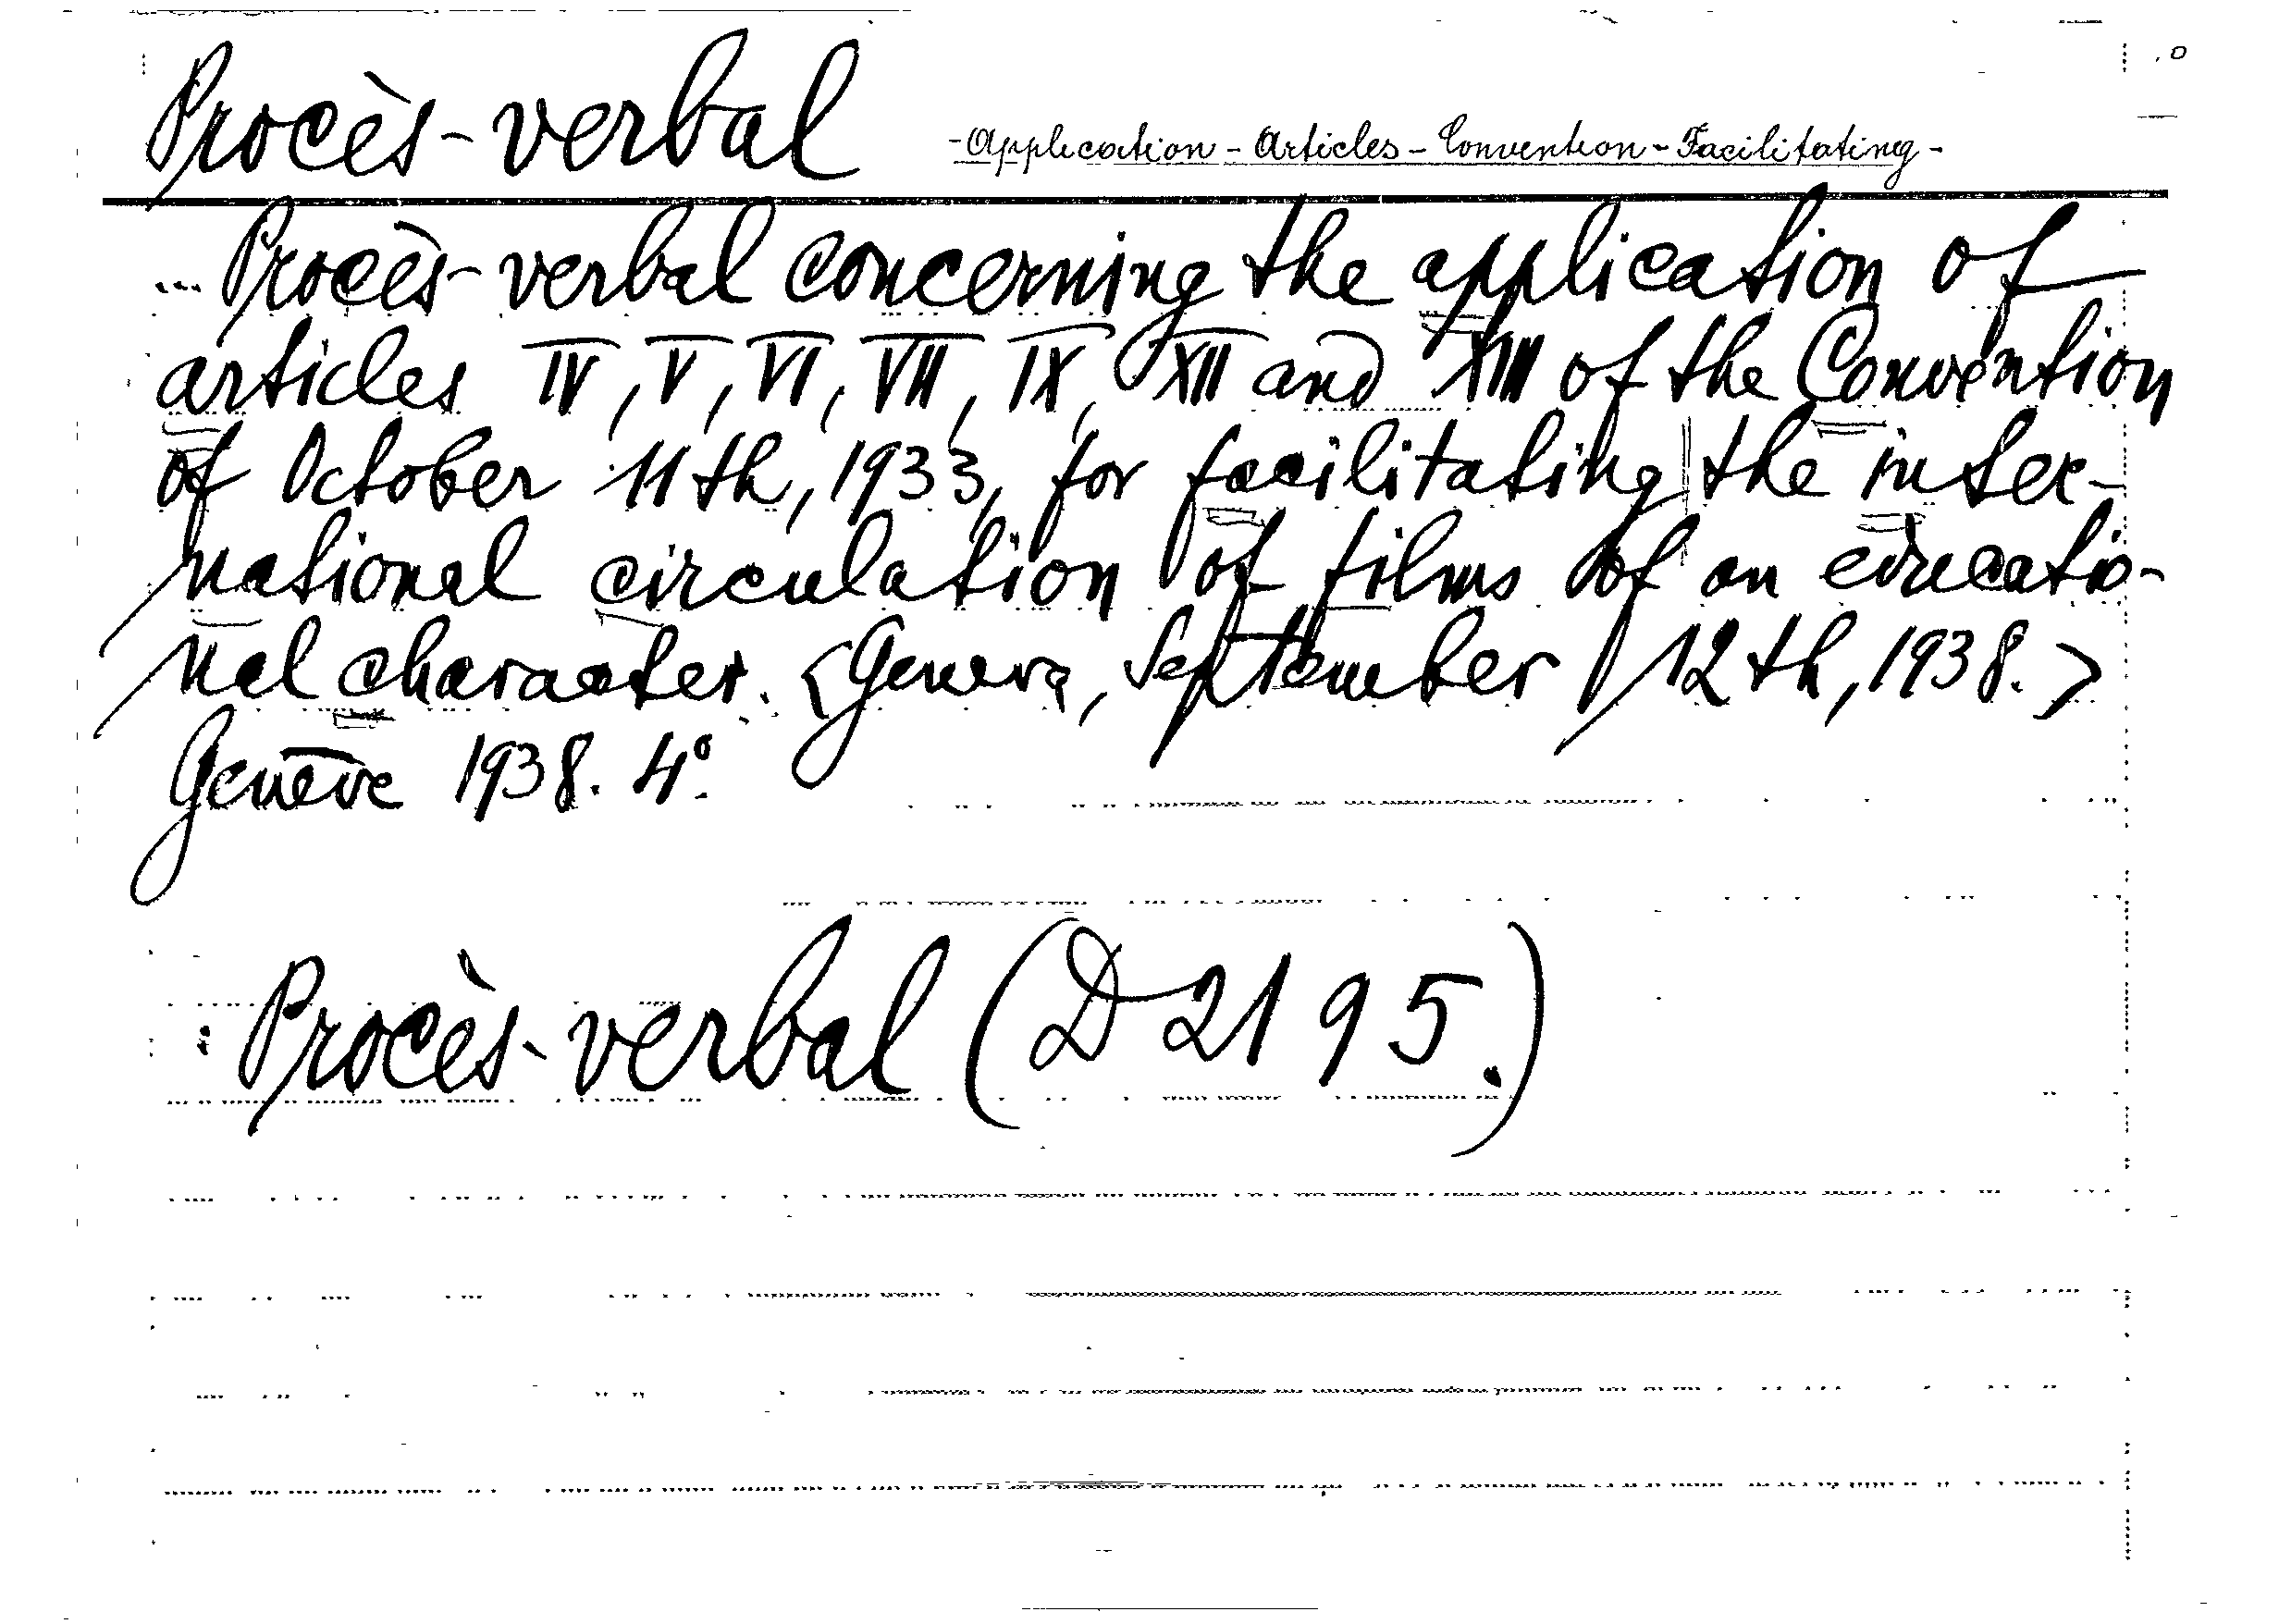 Procès-verbal -Application-Articles-Convention-Facilitating-
... Procès-verbal concerning the application of
articles IV, V, VI, VII, IX, XII and XIII of the Convention
of October 11th, 1933, for facilitating the inter-
national circulation of films of an educatio-
nal character. <Geneva, September 12th, 1938.>
Genève 1938. 4°.
: Procès-verbal (D 2195.)